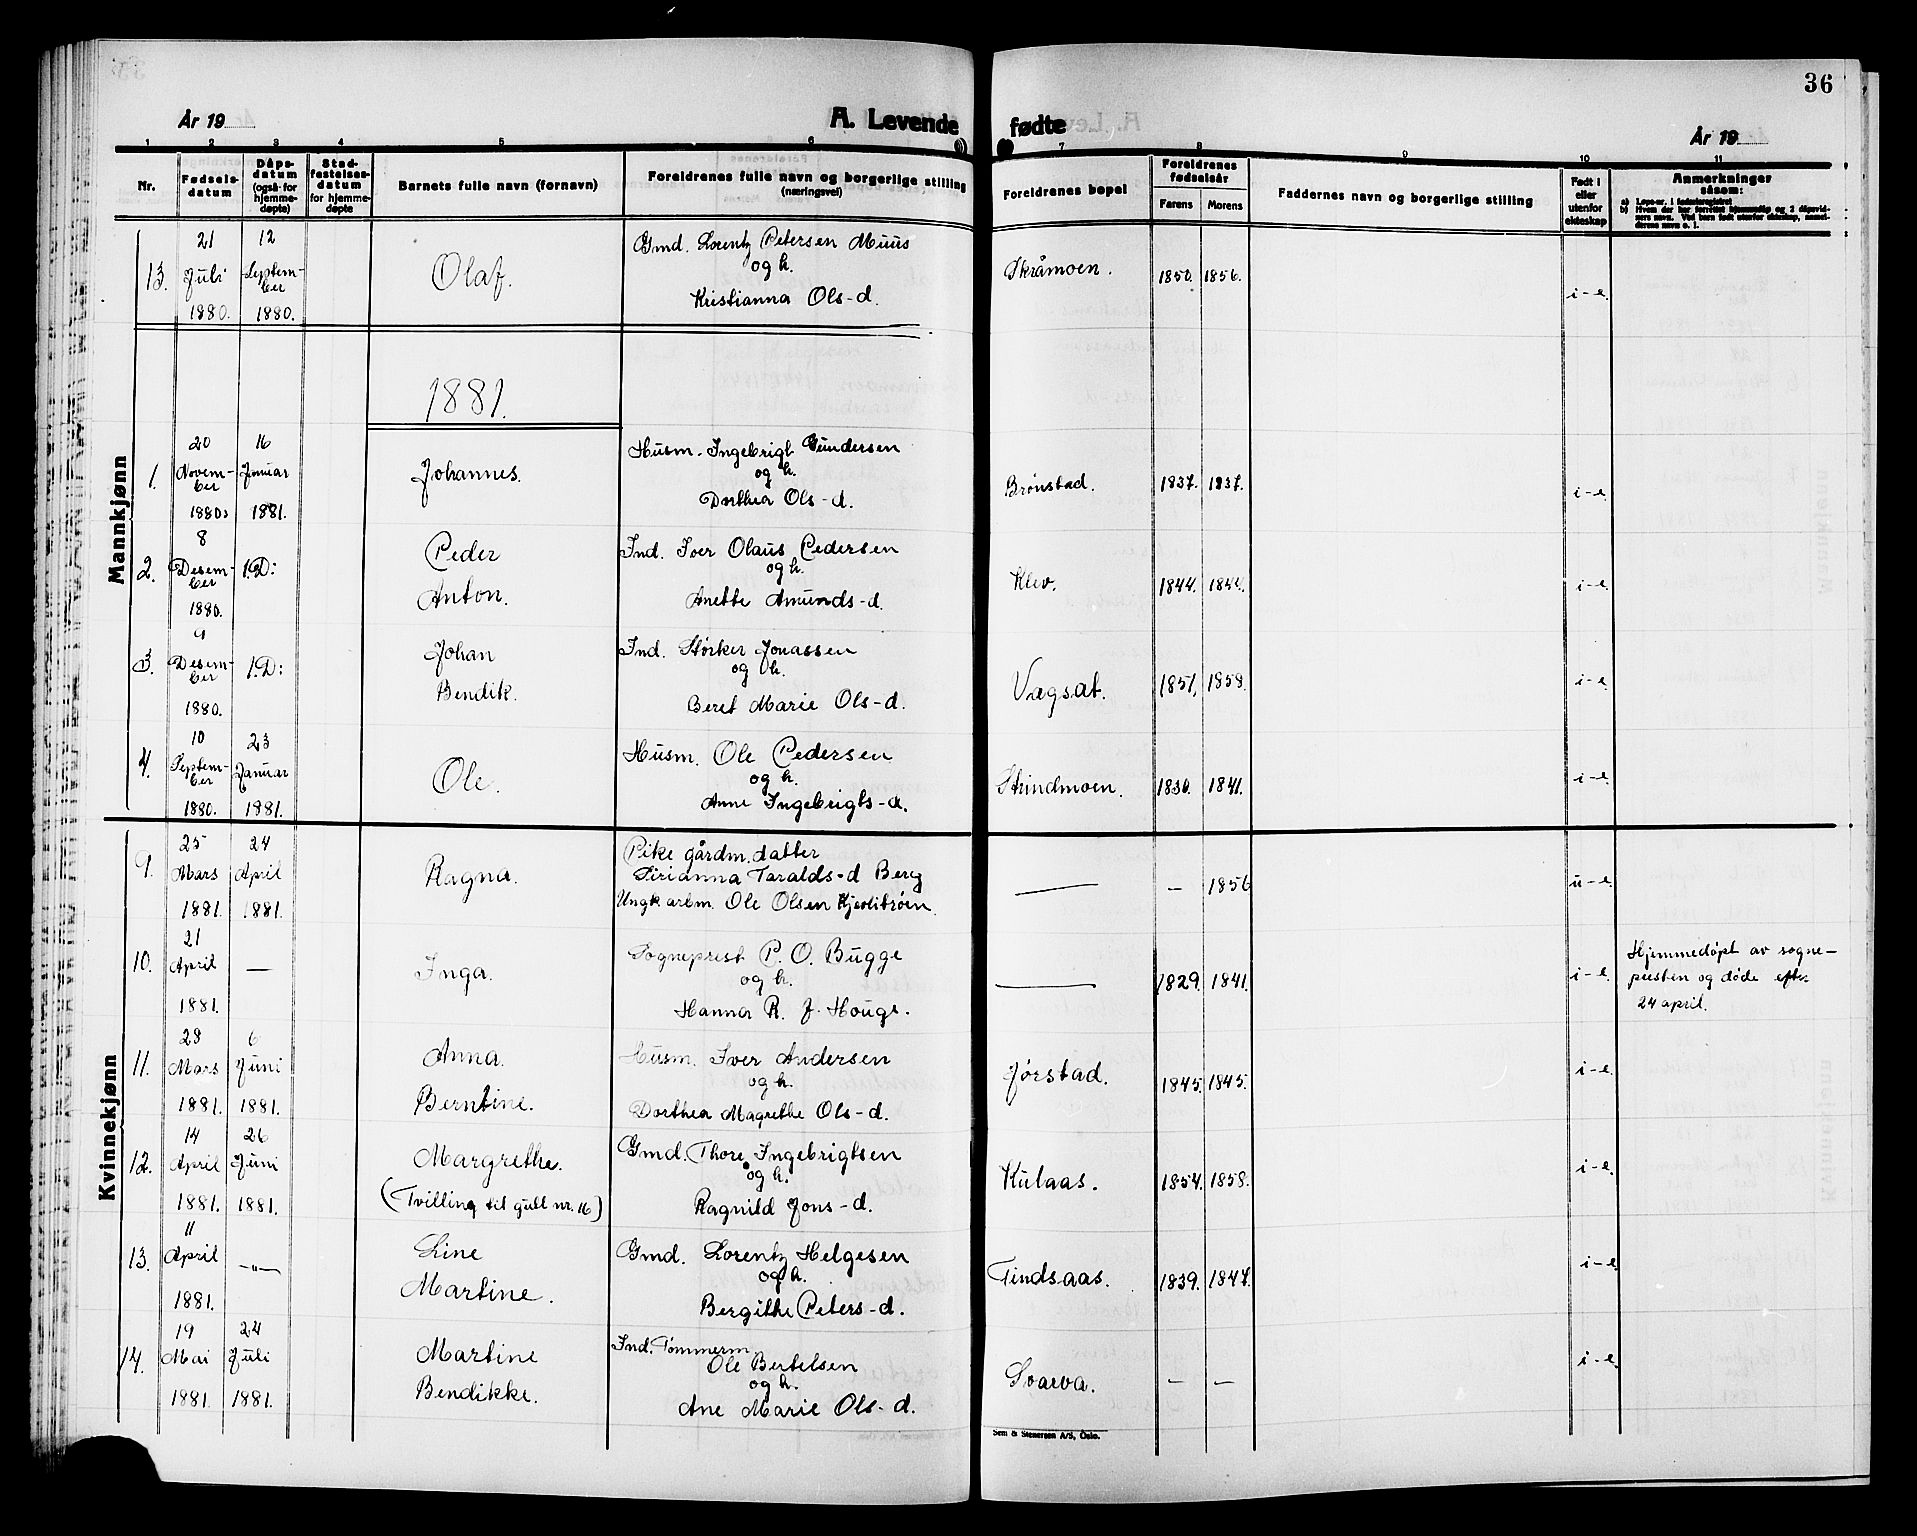 36
År 19
A. Levende fødte
År 19
1 2 3 4 5 6 7 8 9 10 11
Nr.
Fødsels-
datum
Dåps-
datum
(også for
hjemme-
døpte)
Stad-
festelses-
datum
for hjemme-
døpte
Barnets fulle navn (fornavn)
Foreldrenes fulle navn og borgerlige stilling
(næringsvei)
Foreldrenes bopel
Foreldrenes
fødselsår
Farens
Morens
Faddernes navn og borgerlige stilling
Født i
eller
utenfor
ekteskap
Anmerkninger
såsom:
a) Løpe-nr. i fødselsregistret
Mannkjønn
13.
21
Juli
1880.
12
Septem-
ber
1880.
Olaf.
Gmd. Lorentz Petersen Muus
og h.
Kristianna Ols-d.
Skråmoen.
1850.
1856.
i-e.
1881.
1.
20
Novem-
ber
1880.
16
Januar
1881.
Johannes.
Husm. Ingebrigt Gundersen
og h.
Dorthea Ols-d.
Brønstad.
1837.
1837.
i-e.
2.
8
Desem-
ber
1880.
1.D:
Peder
Anton.
Ind. Iver Olaus Pedersen
og h.
Anette Amunds-d.
Klev.
1844.
1844.
i-e.
3.
9
Desem-
ber
1880.
1.D:
Johan
Bendik.
Ind. Størker Jonassen
og h.
Beret Marie Ols-d.
Vægsat.
1851.
1858.
i-e.
4.
10
Septem-
ber
1880.
23
Januar
1881.
Ole.
Husm. Ole Pedersen
og h.
Anne Ingebrigts-d.
Strindmoen.
1830.
1841.
i-e.
Kvinnekjønn
9.
25
Mars
1881.
24
April
1881.
Ragna.
Pike gårdm. datter
Sirianna Taralds-d Berg
Ungk arbm. Ole Olsen
—
—
1856
u-e.
10.
21
April
1881.
—
Inga.
Sogneprest P. O. Bugge
og h.
Hanna R. J. Hougs.
—
1829.
1841.
i-e.
Hjemmedøpt av sogne-
presten og døde efter
24 april.
11.
28
Mars
1881.
6
Juni
1881.
Anna.
Berntine.
Husm. Iver Andersen
og h.
Dorthea Magrethe Ols-d.
Jørstad.
1845.
1845.
i-e.
12.
14
April
1881.
26
Juni
1881.
Margrethe.
(Tvilling til gutt nr. 16)
Gmd. Thore Ingebrigtsen
og h.
Ragnild Jons-d.
Kulaas.
1854.
1858.
i-e.
13.
11
April
1881.
—"—
Line
Martine.
Gmd. Lorentz Helgesen
og h.
Bergithe Peters-d.
Tindsaas.
1839.
1847.
i-e.
14.
19
Mai
1881.
24
Juli
1881.
Martine
Bendikke.
Ind. Tømmerm
Ole Bertelsen
og h.
Ane Marie Ols-d.
Svarva.
—
—
i-e.
Sem & Stenersen A/S, Oslo.